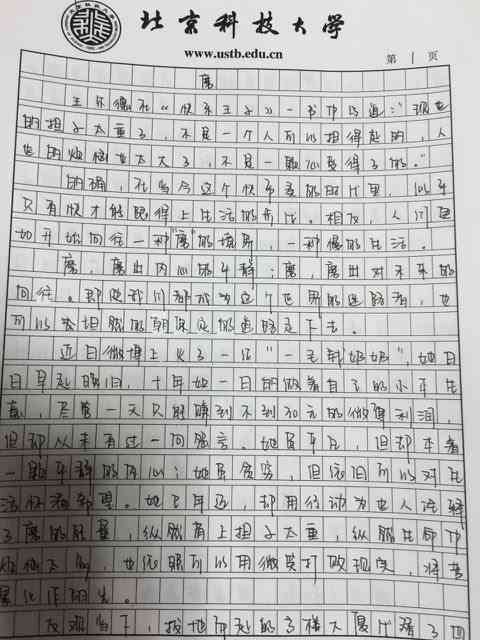 北京科技大学
www.ustb.edu.cn
第 1 页
王尔德在《快乐王子》一书中写道：“现世
的担子太重了，不是一个人可以担得起的，人
世的烦恼也太大了，不是一颗心受得了的。”
的确，在当今这个快节奏的时代里，似乎
只有快才能跟得上生活的步伐。相反，人们更
加开始向往一种的境界，一种慢的生活。
出内心的平静；出对未来的
向往。即使我们都成为这个世界的迷路者，也
可以去坦然的朝原定的道路走下去。
近日微博上火了一位“一毛钱奶奶”，她日
日早起晚归，十年如一日的做着自己的小本生
意，尽管一天只能赚到不到30元的微薄利润，
但却从未有过一句怨言。她虽平凡，但却本着
一颗平静的内心；她虽贫穷，但依旧可以对生
活怀有希望。她已年迈，却用行动为世人诠释
了的能量，纵然肩上担子太重，纵然生命中
烦恼太多，也依照可以用微笑打败现实，将苦
难化作明光。
反观当下，拔地而起的高楼大厦代替了